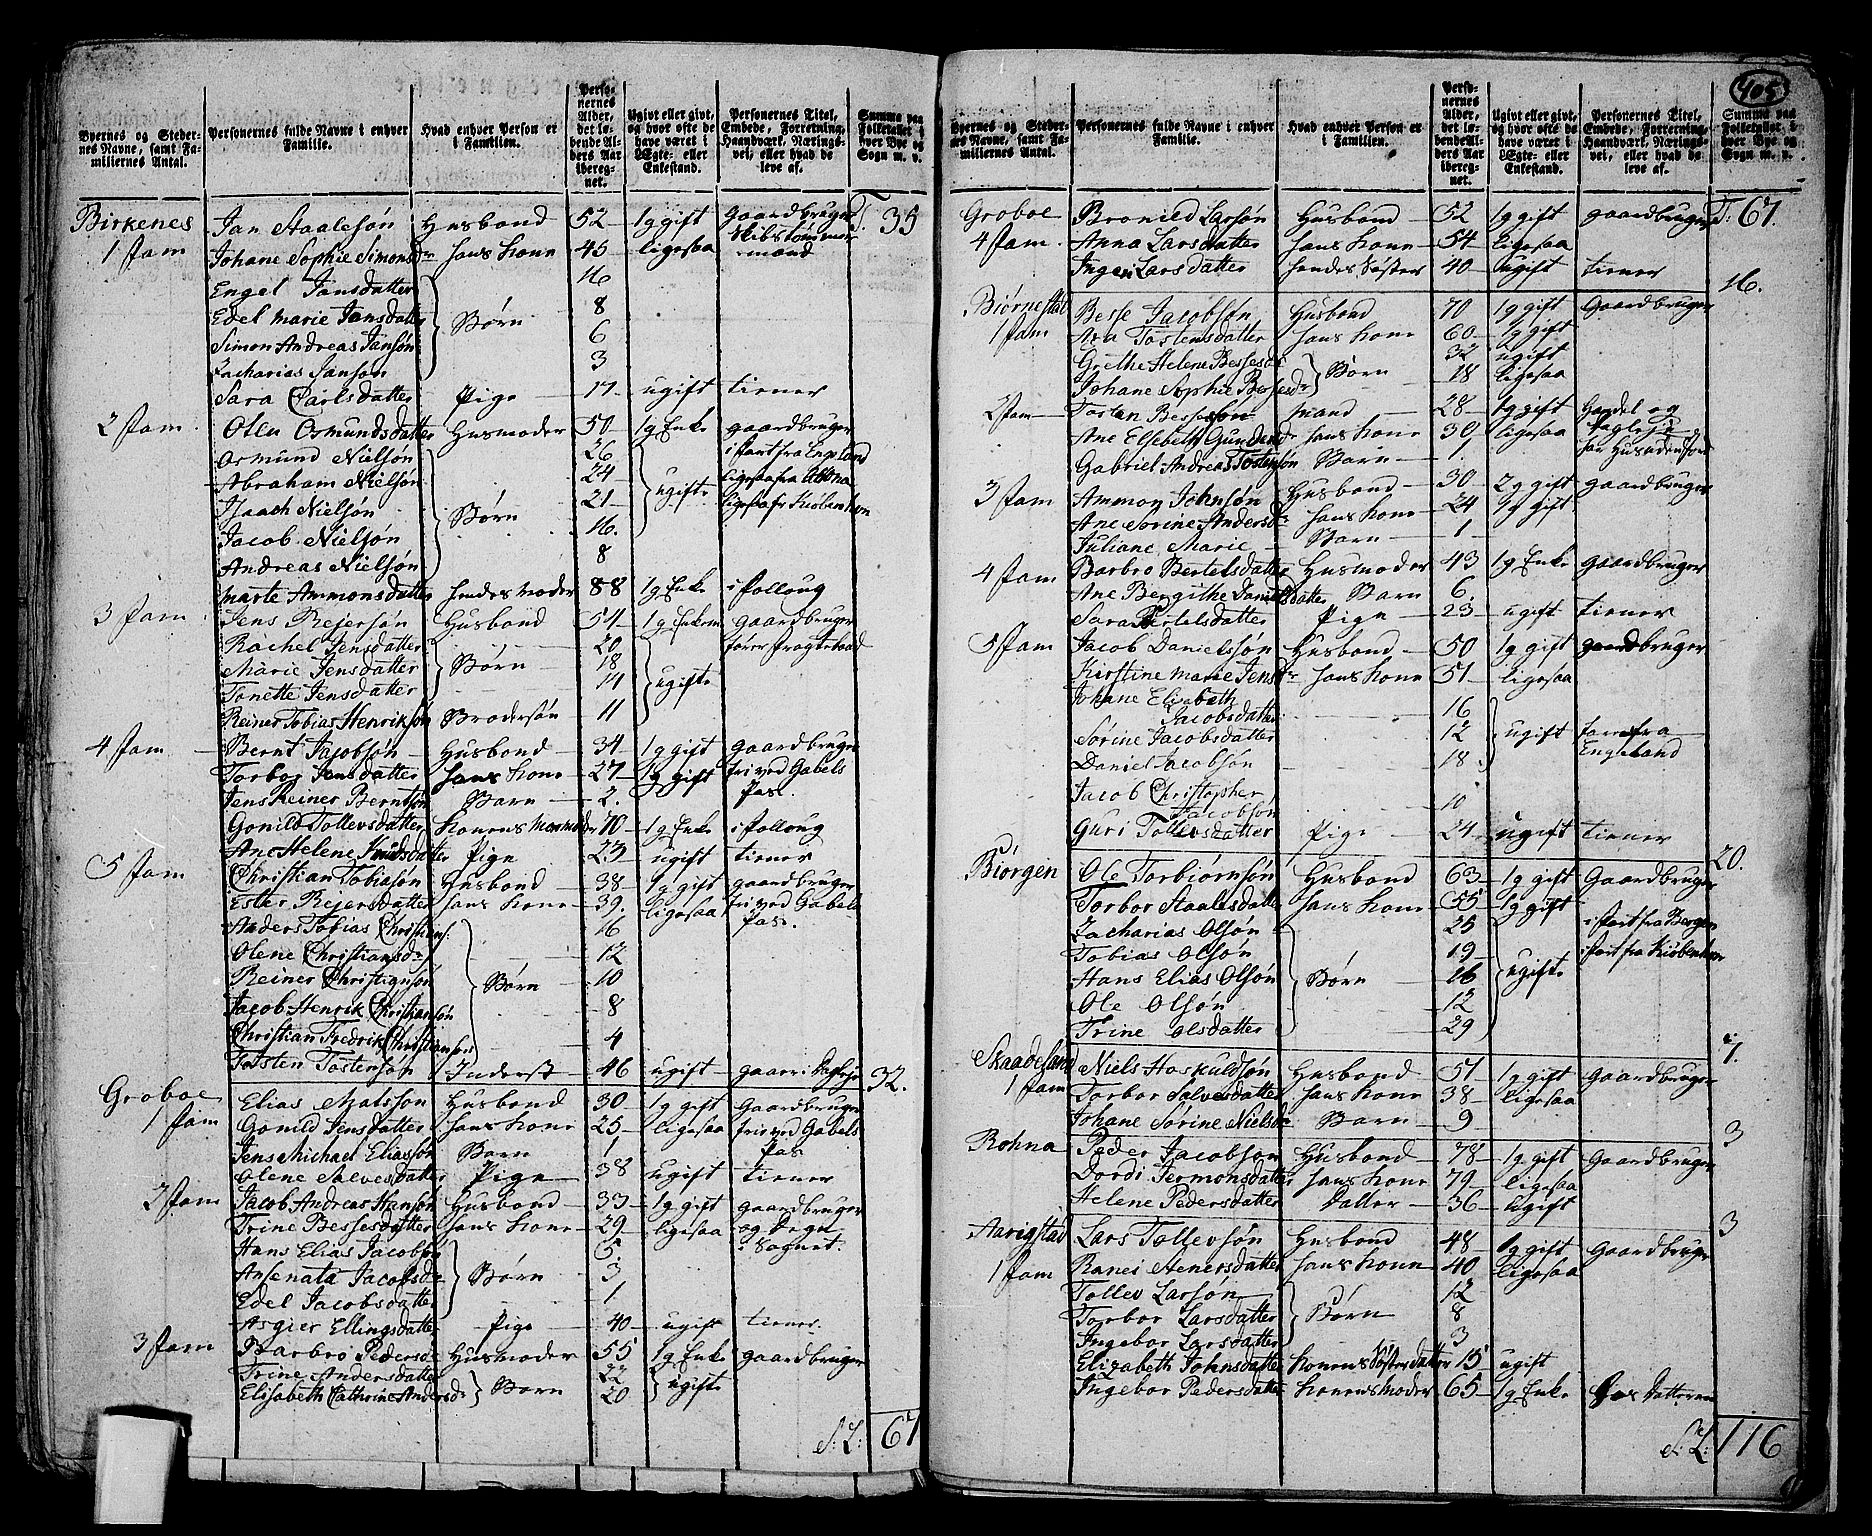 405
Byernes og Stedernes Navne, samt Familiernes Antal. | Personernes fulde Navne i enhver Familie. | Hvad enhver Person er i Familien. | Personernes Alder, det løbende Alders Aar iberegnet. | Ugivt eller givt, og hvor ofte de have været i Ægte- eller Enkestand. | Personernes Titel, Embede, Forretning, Haandværk, Næringsvei, eller hvad de leve af. | Summa paa Folketallet i hver Bye og Sogn m. v.
Birkenes | Jan Staalesøn | Husbond | 52 | 1g gift | gaardbruger | T. 35
1 Fam | Johane Sophie Simonsdr | hans Kone | 45 | ligesaa | Skibstømmermand
Engel Jansdatter | 16
Edel Marie Jansdatter | Børn | 8
Simon Andreas Jansøn | 6
Zacharias Jansøn | 3
Sara Carlsdatter | Pige | 17 | ugift | tiener
2 Fam | Olen Osmundsdatter | Husmoder | 50 | 1g Enke | gaardbruger
Osmund Nielsøn | 26 | i fart fra Engeland
Abraham Nielsøn | 24 | ugifte | ligesaa fra Altona
Haach Nielsøn | Børn | 21 | ligesaa fr Kiøbenhavn
Jacob Nielsøn | 16
Andreas Nielsøn | 8
Marte Ammonsdatter | hendes Moder | 88 | 1g Enke | i folloug
3 Fam | Jens Reiersøn | Husbond | 54 | 1g Enkem | gaardbruger
Rachel Jensdatter | 20 | fører fragtebaad
Marie Jensdatter | Børn | 18 | ugifte
Tonette Jensdatter | 14
Reiner Tobias Henriksøn | Brodersøn | 11
4 Fam | Bernt Jacobsøn | Husbond | 34 | 1g gift | gaardbruger
Torbor Jensdatter | hans Kone | 27 | 1g gift | fri ved Gabels
Jens Reiner Berntsøn | Barn | 2. | Pas
Gonild Tollevsdatter | Konens Moder | 70 | 1g Enke | i folloug
Ane Helene Knudsdatter | Pige | 23 | ugift | tiener
5 Fam | Christian Tobiasøn | Husbond | 38 | 1g gift | gaardbruger
Ester Reiersdatter | hans Kone | 39. | ligesaa | fri ved Gabels
Anders Tobias Christians. | 16 | Pas.
Olene Christiansdr | 12
Reiner Christiansøn | Børn | 10
Jacob Henrik Christiansøn | 8
Christian Fredrik Christiansen | 4
Tosten Tostensøn | Inderst | 46 | ugift | 32.
Groboe | Elias Matsøn | Husbond | 30 | 1g gift | Gaardbruger
1 Fam | Gonild Jensdatter | hans Kone | 25 | ligesaa | fri ved Gabels
Jens Michael Eliasøn | Barn | 1 | Pas
Olene Salvesdatter | Pige | 38 | ugift | tiener
2 Fam | Jacob Andreas Hansøn | Husbond | 33 | 1g gift | gaardbruger
Trine Bessesdatter | hans Kone | 29 | ligesaa | og Degn
Hans Elias Jacobsøn | 5. | i Sognet.
Ansenata Jacobsdr | Børn | 3
Edel Jacobsdatter | 1
Asgier Ellingsdatter | Pige | 40 | ugift | tiener
3 Fam | Barbro Pedersdr | Husmoder | 55 | 1g Enke | gaardbruger
Trine Andersdatter | 22
Elisabeth Cathrine Andersdr | Børn | 20 | ugifte
S: L: 67
Byernes og Stedernes Navne, samt Familiernes Antal. | Personernes fulde Navne i enhver Familie. | Hvad enhver Person er i Familien. | Personernes Alder, det løbende Alders Aar iberegnet. | Ugivt eller givt, og hvor ofte de have været i Ægte- eller Enkestand. | Personernes Titel, Embede, Forretning, Haandværk, Næringsvei, eller hvad de leve af. | Summa paa Folketallet i hver Bye og Sogn m. v.
Groboe | Bronild Larsøn | Husbond | 52 | 1g gift | gaardbruger | T: 67.
4 Fam. | Anna Larsdatter | hans Kone | 54 | ligesaa
Ingeri Larsdatter | hendes Søster | 40 | ugift | tiener | 16.
Biørnestøl | Besse Jacobsøn | Husbond | 70 | 1g gift | Gaardbruger
1 Fam | Ana Tostensdatter | hans Kone | 60 | 1g gift
Grethe Helene Bessesdr | Børn | 32 | ugift
Johane Sophie Bessesdr | 18 | ligesaa
2 Fam | Tosten Bessesøn | Mand | 28 | 1g gift | Handel og
Ane Elsebeth Gundersdr | hans Kone | 30 | ligesaa
Gabriel Andreas Tostensøn | Barn | 1
3 Fam | Ammon Johnsøn | Husbond | 30 | 2g gift | gaardbruger
Ane Sørine Andersdr | hans Kone | 24 | 1g gift
Juliane Marie | Barn | 1
4 Fam | Barbro Bertelsdatter | Husmoder | 43 | 1g Enke | gaardbruger
Ane Bergithe Danielsdatter | Barn | 6.
Sara Bertelsdatter | Pige | 23 | ugift | tiener
5 Fam | Jacob Danielsøn | Husbond | 50 | 1g gift | gaardbruger
Kirstine Marie Jensdr | hans Kone | 51 | ligesaa
Johane Elisabeth
Jacobsdatter | 16
Sørine Jacobsdatter | 12 | ugift | fare fra
Daniel Jacobsøn | 18 | Engeland
Jacob Christopher
Jacobsøn | 10
Guri Tollevsdatter | Pige | 24 | ugift | tiener | 20.
Biørgen | Ole Torbiørnsøn | Husbond | 63 | 1g gift | Gaardbruger
Torbor Staalesdatter | hans Kone | 55 | 1g gift
Zacharias Olsøn | 25 | i fart fra Bergen
Tobias Olsøn | 19 | i fart fra Kiøbenhavn
Hans Elias Olsøn | Børn | 16 | ugifte
Ole Olsøn | 12
Trine Olsdatter | 29 | 7.
Skaadesund | Niels Hoskuldsøn | Husbond | 51 | 1g gift | Gaardbruger
1 Fam | Torbor Salvesdatter | hans Kone | 38 | ligesaa
Johane Sørine Nielsdr | Barn | 9 | 3
Rohna | Peder Jacobsøn | Husbond | 78 | 1g gift | Gaardbruger
Dordi Jermonsdatter | hans Kone | 79 | ligesaa
Helene Pedersdatter | Datter | 36 | ugift | 3
Aarigstad | Lars Tollevsøn | Husbond | 48 | 1g gift | Gaardbruger
1 Fam | Ranei Stenersdatter | hans Kone | 40 | ligesaa
Tollev Larsøn | 12
Torbor Larsdatter | Børn | 8
Ingebor Larsdatter | 3
Elizabeth Johnsdatter | Konens Søsterdatter | 15 | ugift
Ingebor Pedersdatter | Konens Moder | 65 | 1g Enke | hos Datteren
S: L: 116